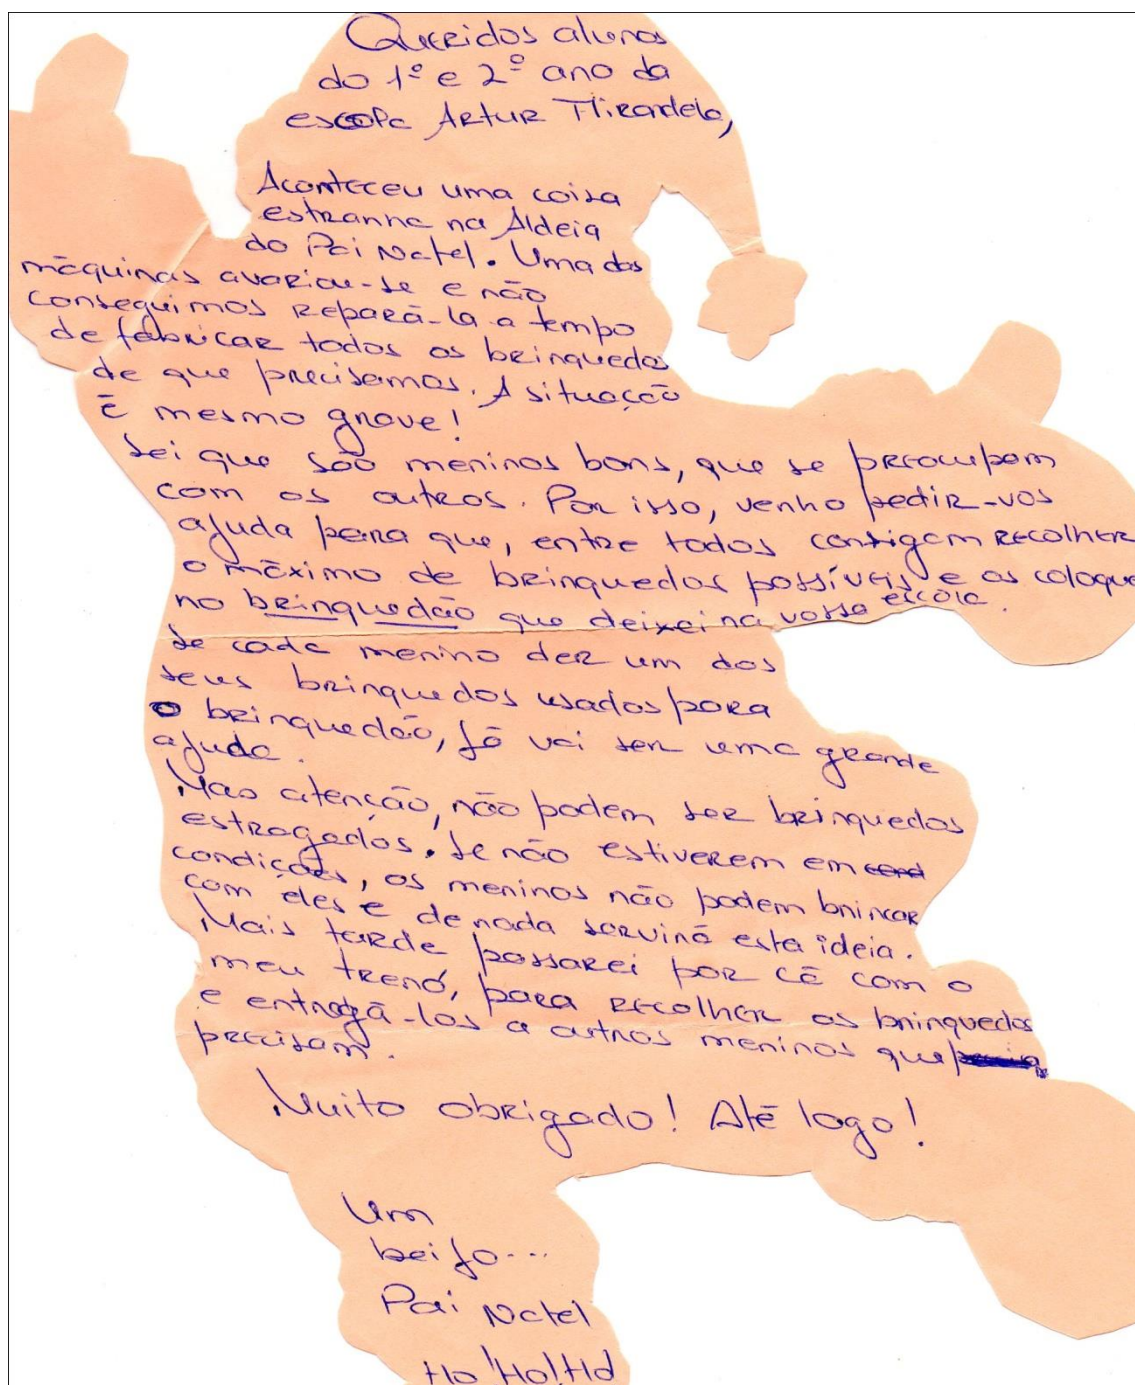 Queridos alunos
do 1º e 2º ano da
escola Artur Mirandela,
Aconteceu uma coisa
estranha na Aldeia
do Pai Natal. Uma das
máquinas avariou-se e não
conseguimos repará-la a tempo
de fabricar todos os brinquedos
de que precisamos. A situação
é mesmo grave!
Sei que são meninos bons, que se preocupam
com os outros. Por isso, venho pedir-vos
ajuda para que, entre todos consigam recolher
o máximo de brinquedos possíveis e os coloque
no brinquedão que deixei na vossa escola.
Se cada menino der um dos
seus brinquedos usados para
o brinquedão, já vai ser uma grande
ajuda.
Mas atenção, não podem ser brinquedos
estragados. Se não estiverem em
condições, os meninos não podem brincar
com eles e de nada servirá esta ideia.
Mais tarde passarei por cá com o
meu trenó, para recolher os brinquedos
e entregá-los a outros meninos que
precisam.
Muito obrigado! Até logo!
Um
beijo...
Pai Natal
Ho!Ho!Ho